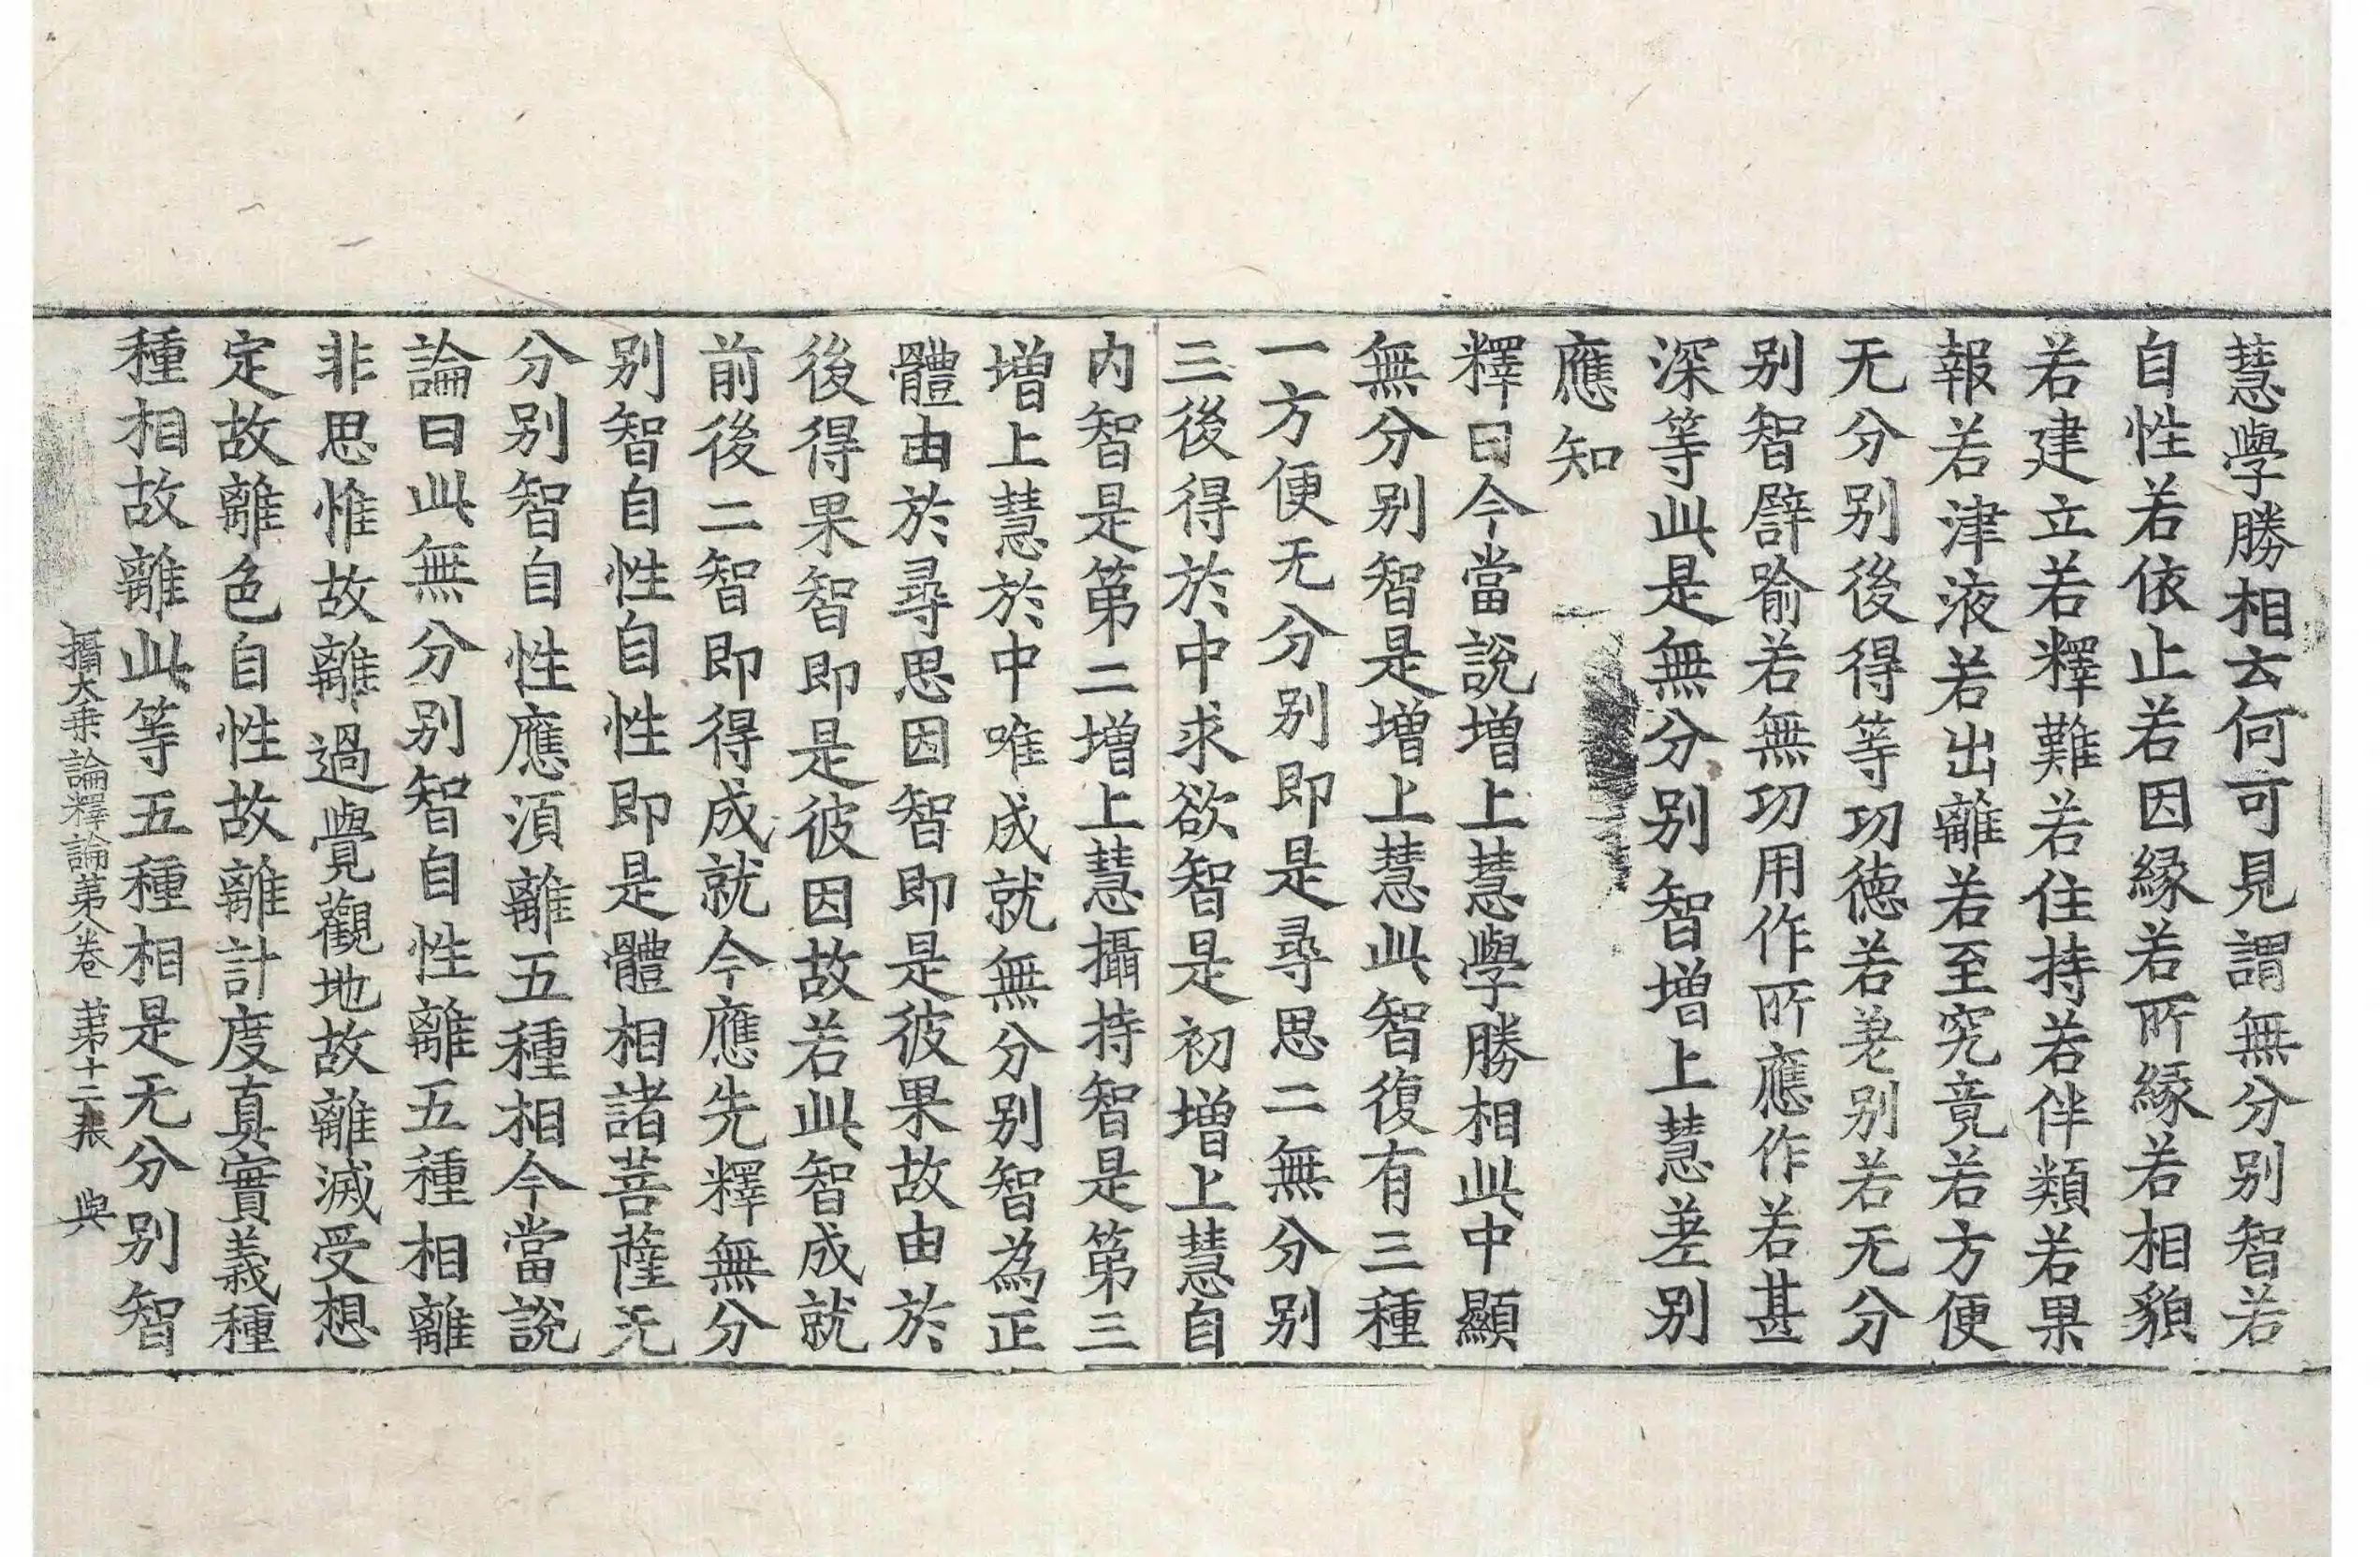 慧學勝相云何可見謂無分别智若
自性若依止若因緣若所緣若相貌
若建立若釋難若住持若伴類若果
報若津液若出離若至究竟若方便
无分别後得等功徳若差别若无分
别智譬喻若無功用作所應作若甚
深等此是無分别智增上慧差别
應知
釋曰今當說增上慧學勝相此中顯
無分别智是增上慧此智復有三種
一方便无分别即是尋思二無分别
三後得於中求欲智是初增上慧自
内智是第二增上慧攝持智是第三
增上慧於中唯成就無分别智為正
體由於尋思因智即是彼果故由於
後得果智即是彼因故若此智成就
前後二智即得成就今應先釋無分
别智自性自性即是體相諸菩薩无
分别智自性應須離五種相今當說
論曰此無分别智自性離五種相離
非思惟故離過覺觀地故離滅受想
定故離色自性故離計度真實義種
種相故離此等五種相是无分别智
攝大乗論釋論苐八卷 苐十二張 與